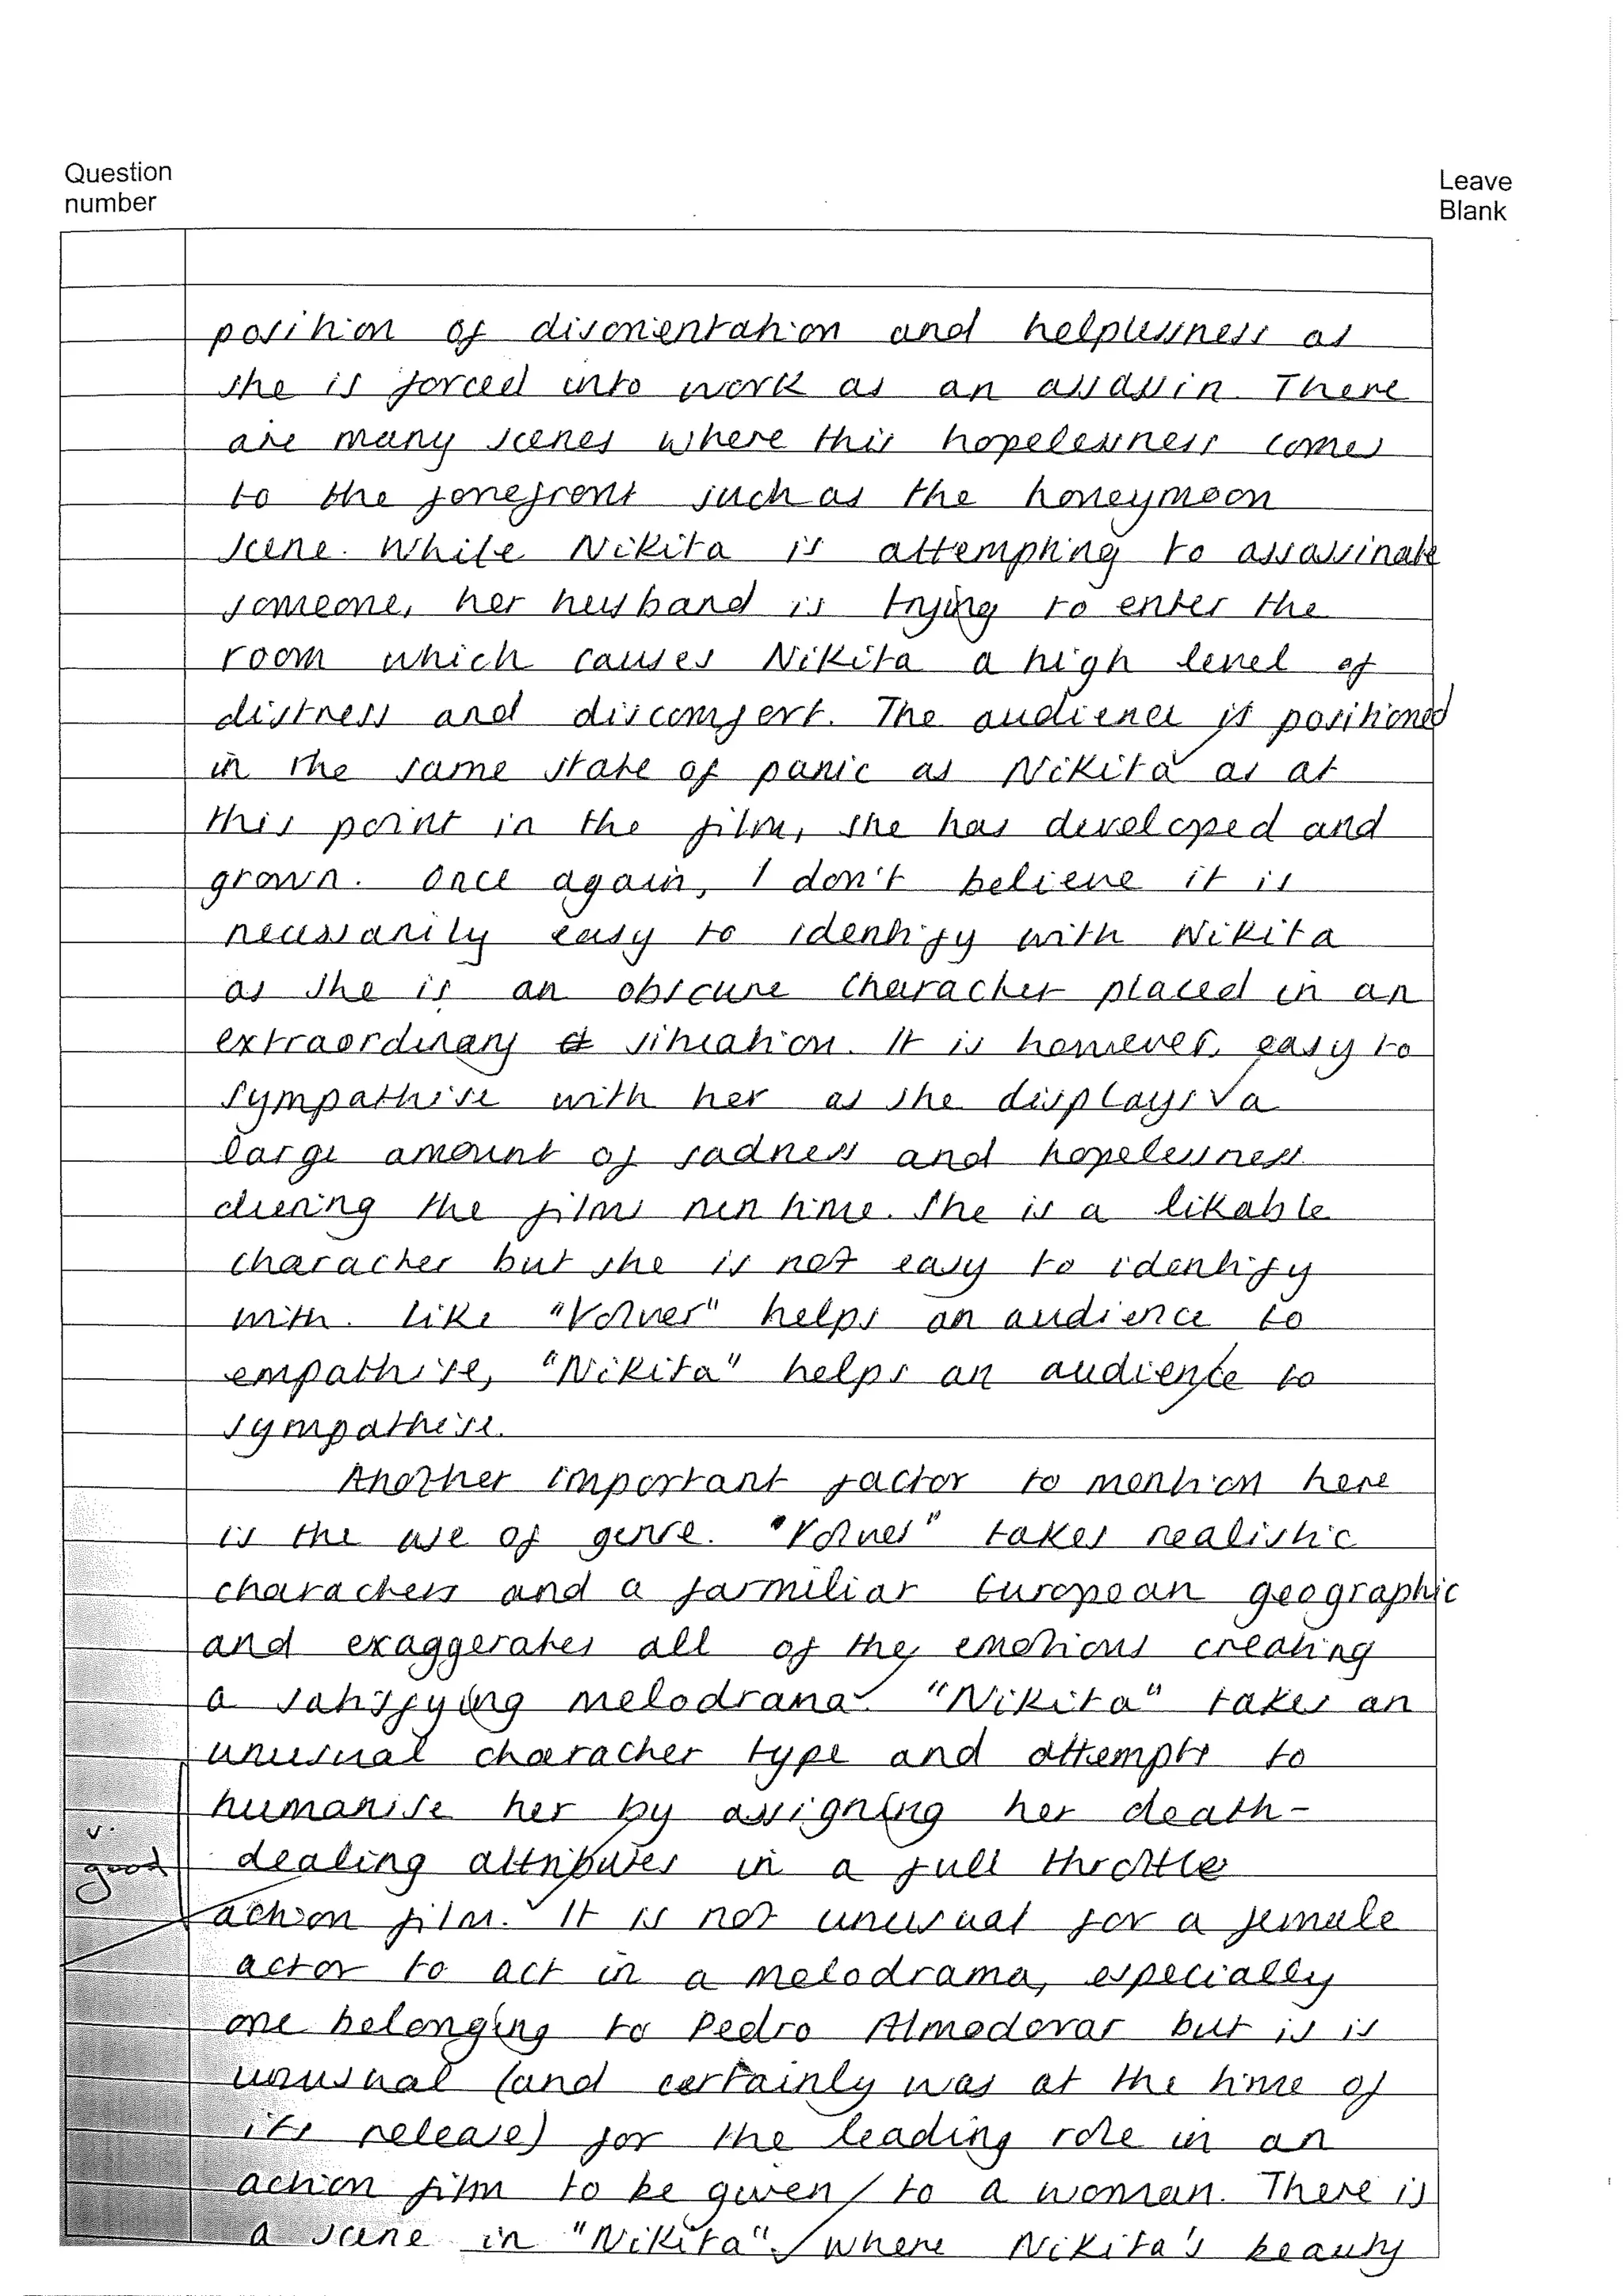 Question
number
Leave
Blank
position of disorientation and helplessness as
she is forced into work as an assassin. There
are many scenes where this hopelessness comes
to the forefront such as the honeymoon
scene. While Nikita is attempting to assassinate
someone, her husband is trying to enter the
room which causes Nikita a high level of
distress and discomfort. The audience is positioned
in the same state of panic as Nikita as at
this point in the film, she has developed and
grown. Once again, I don't believe it is
necessarily easy to identify with Nikita
as she is an obscure character placed in an
extraordinary situation. It is however, easy to
sympathise with her as she displays a
large amount of sadness and hopelessness
during the films run time. She is a likable
character but she is not easy to identify
with. Like "Volver" helps an audience to
empathise, "Nikita" helps an audience to
sympathise.
Another important factor to mention here
is the use of genre. "Volver" takes realistic
characters and a farmiliar European geographic
and exaggerates all of the emotions creating
a satisfying melodrama. "Nikita" takes an
unusual character type and attempts to
humanise her by assigning her death-
v.
good
dealing attributes in a full throttle
action film. It is not unusual for a female
actor to act in a melodrama, especially
one belonging to Pedro Almodovar but is is
unusual (and certainly was at the time of
its release) for the leading role in an
action film to be given to a woman. There is
a scene in "Nikita" where Nikita's beauty